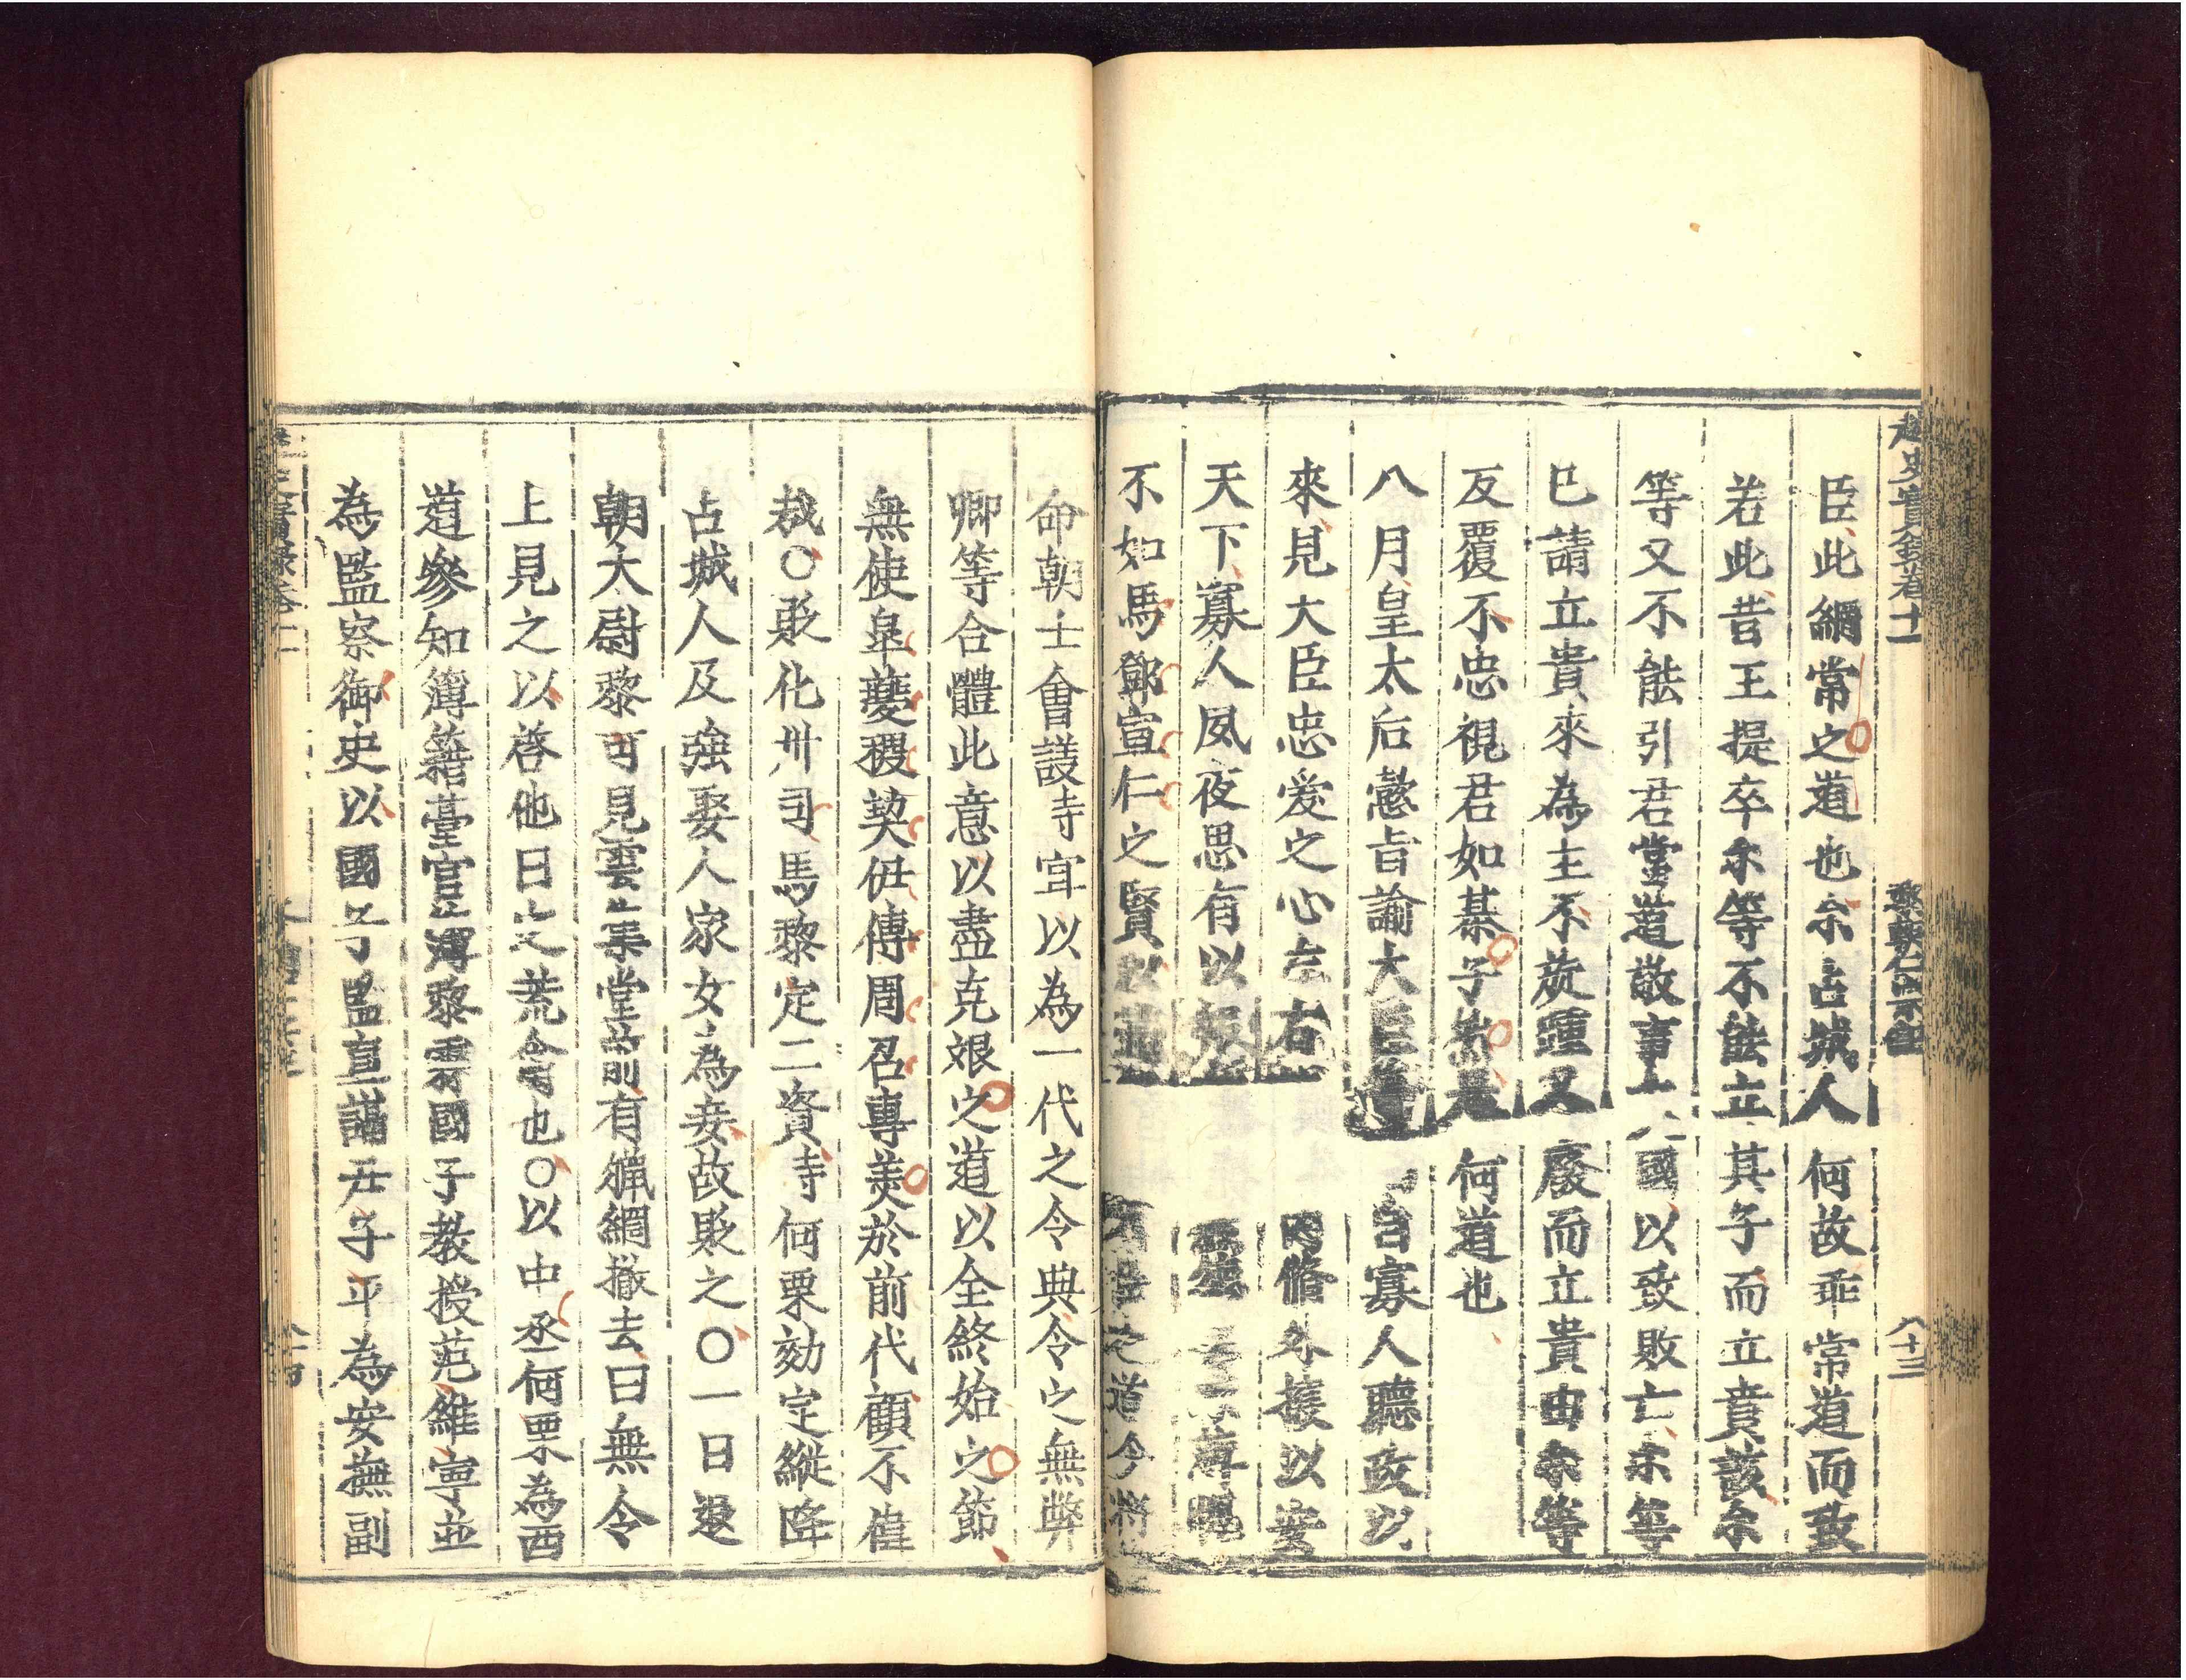 越史實錄卷十一 黎朝仁宗紀 八十三
臣此綱常之道也尒占城人何故乖常道而致
若此昔王提卒尒等不能立其子而立賁該尒
等又不能引君當道敬事大國以致敗亡尒等
已請立貴來為主不旋踵又廢而立貴由尒等
反覆不忠視君如棊子然是何道也
八月皇太后懿旨諭大臣等曰寡人聽政以
來見大臣忠愛之心左右內脩外接以安
天下寡人夙夜思有以報
不如馬鄧宣仁之賢之道今將
命朝士會議寺宜以為一代之令典令之無弊
卿等合體此意以盡克艱之道以全終始之節
無使皐夔稷契伊傅周召專美於前代顧不偉
哉○貶化州司馬黎定二資寺何栗劾定縱降
占城人及強娶人家女為妾故貶之○一日退
朝太尉黎可見雲集堂前有獵網撤去曰無令
上見之以啓他日之荒禽也○以中丞何栗為西
道參知簿籍臺官薄黎雲國子教授范維寧並
為監察御史以國子監直講尹子平為安撫副